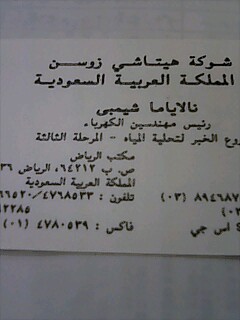 شركة هيتاشي زوسن
المملكة العربية السعودية
نالاياما شيمبى
رئيس مهندسين الكهرباء.
وع الخبر لتحلية المياه - المرحلة الثالثة
مكتب الرياض
ص. ب ٦٤٢١٢، الرياض ٣٦
المملكة العربية السعودية
(٠٣) ٨٩٤٦٨٧
تلفون : ٤٧٦٨٥٣٣/٦٦٥٢٠
٢٢٨٥
اس جي
فاكس : ٤٧٨٠٥٣٩ (٠١)